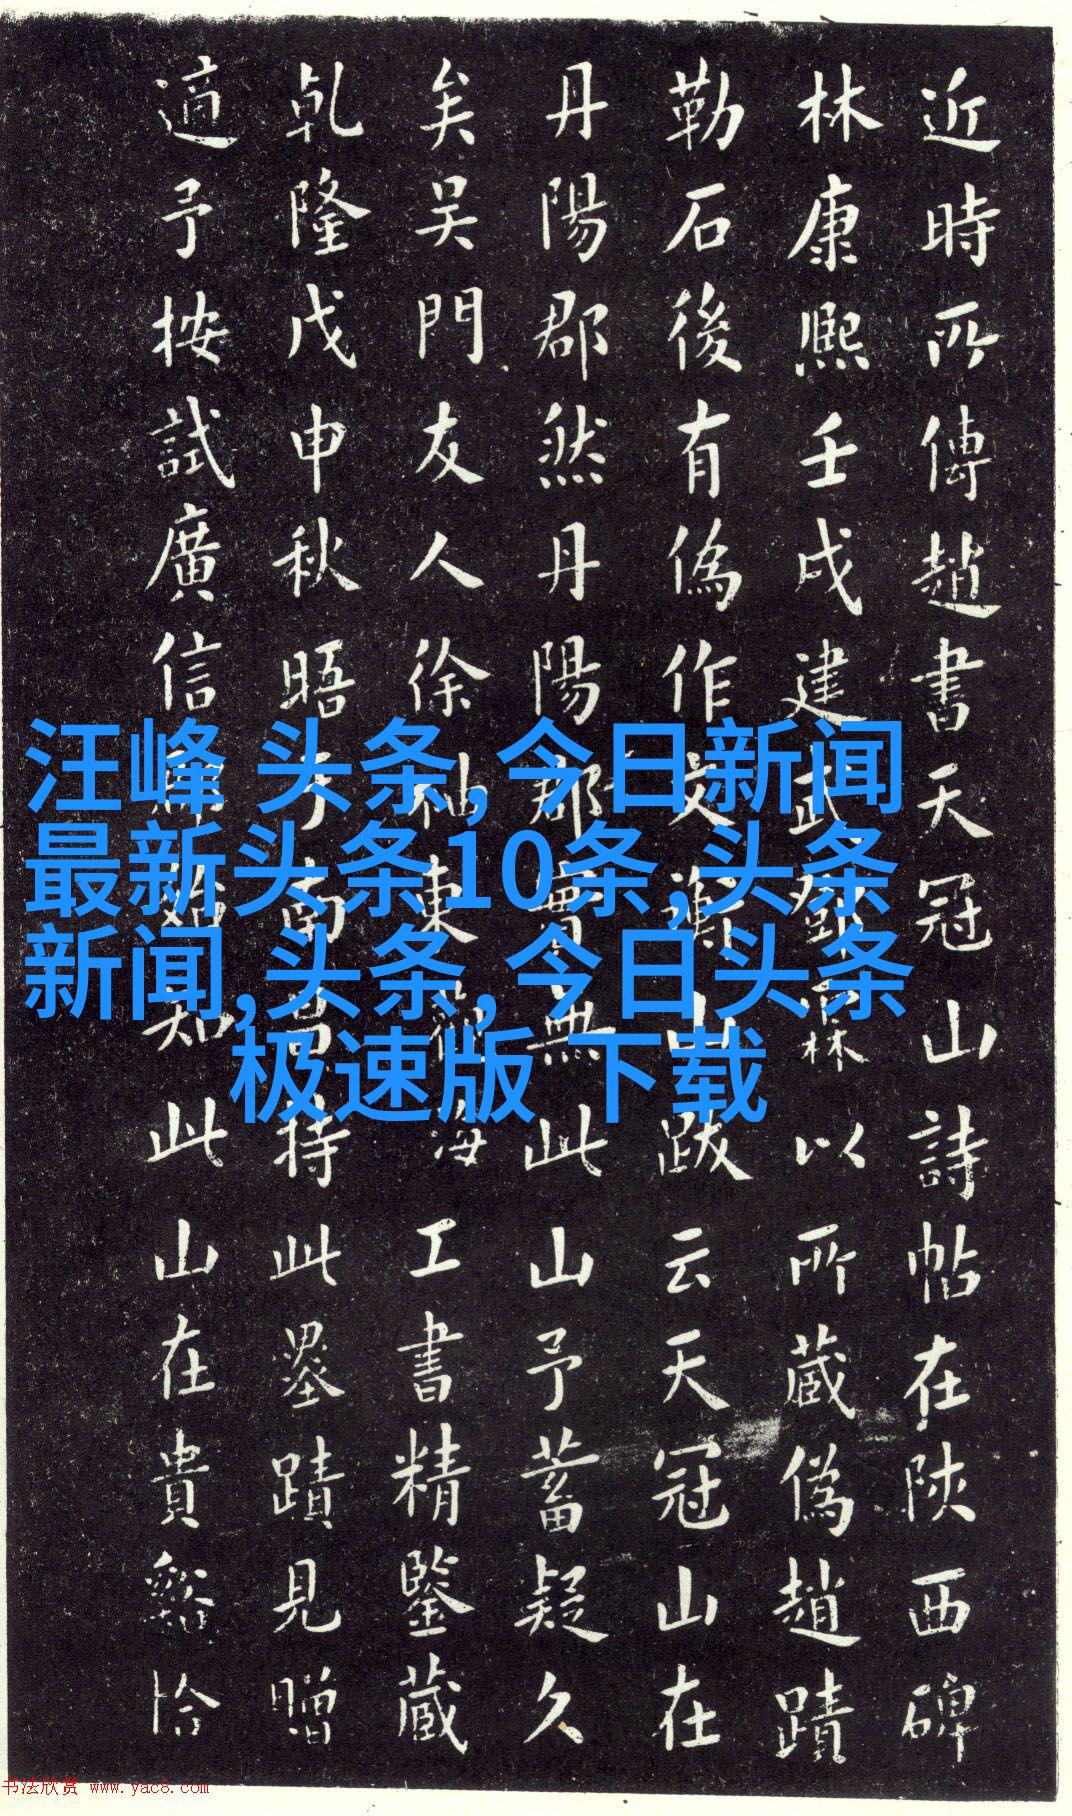 近時所傳趙書天冠山詩帖在陝西碑
林康熙壬戌建武鄧霖以所藏偽趙蹟
勒石後有偽作文衡山跋云天冠山在
丹陽郡然丹陽郡實無此山予蓄疑久
矣吳門友人徐袖東觀海工書精鑒藏
乹隆戊申秋晤于南昌持此墨蹟見贈
適予按試廣信始知此山在貴谿恰
汪峰 头条, 今日新闻
最新头条10条,头条
新闻,头条, 今日头条
极速版 下载
书法欣赏 www.yac8.com